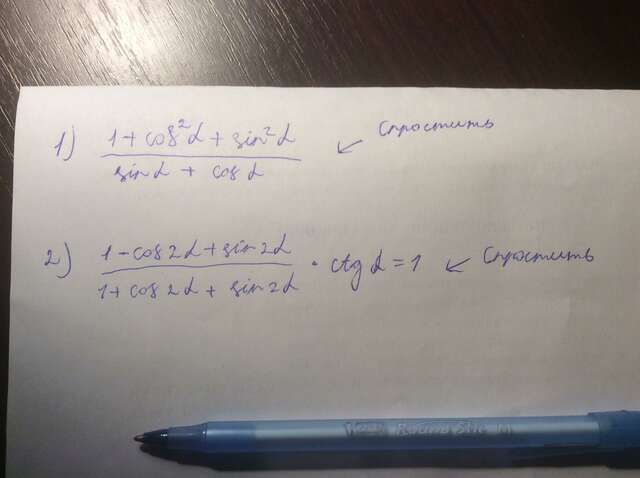 1) (1 + cos²α + sin²α) / (sin α + cos α) ↙ Спростить
2) (1 - cos 2α + sin 2α) / (1 + cos 2α + sin 2α) · ctg α = 1 ↙ Спростить
Round Stic M